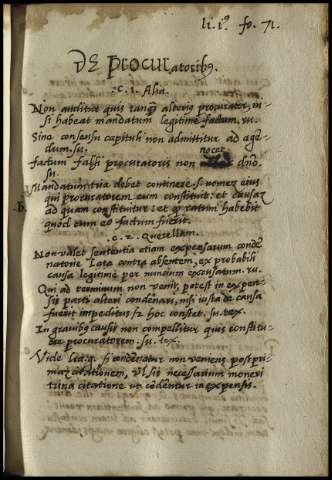 li. i°. fo. 71.
DE Procuratoribus
.c. 1. Alia.
Non auditur quis tanq̃ alterius procurator, ni-
si habeat mandatum legitime factum. ru.
Sine consensu capituli non admittitur ad agē-
dum. su.
nocet
factum falsi procuratoris non dño.
sn.
Mandatum ista debet continere. s. nomen eius
B. qui procuratorem eum constituit: et causaȝ
ad quam constituitur: et qȝ ratum habebit
quod cum eo factum fuerit.
.c. 2. Querellam.
Non valet sententia etiam expensarum conde-
natorie lata contra absentem, ex probabili
causa legitime per nuncium excusatum. ru.
Qui ad terminum non venit, potest in expen-
sis parti alteri condenari, nisi iusta de causa
fuerit impeditus & hoc constet. su. tex.
In gravibȝ causis non compellitur quis constitue-
re procuratorem. su. tex.
Vide si condenatur non veniens post pri-
maȝ citationem, Vl sit necessarium moneri
in una citatione ut cōdēnetur in expensis.